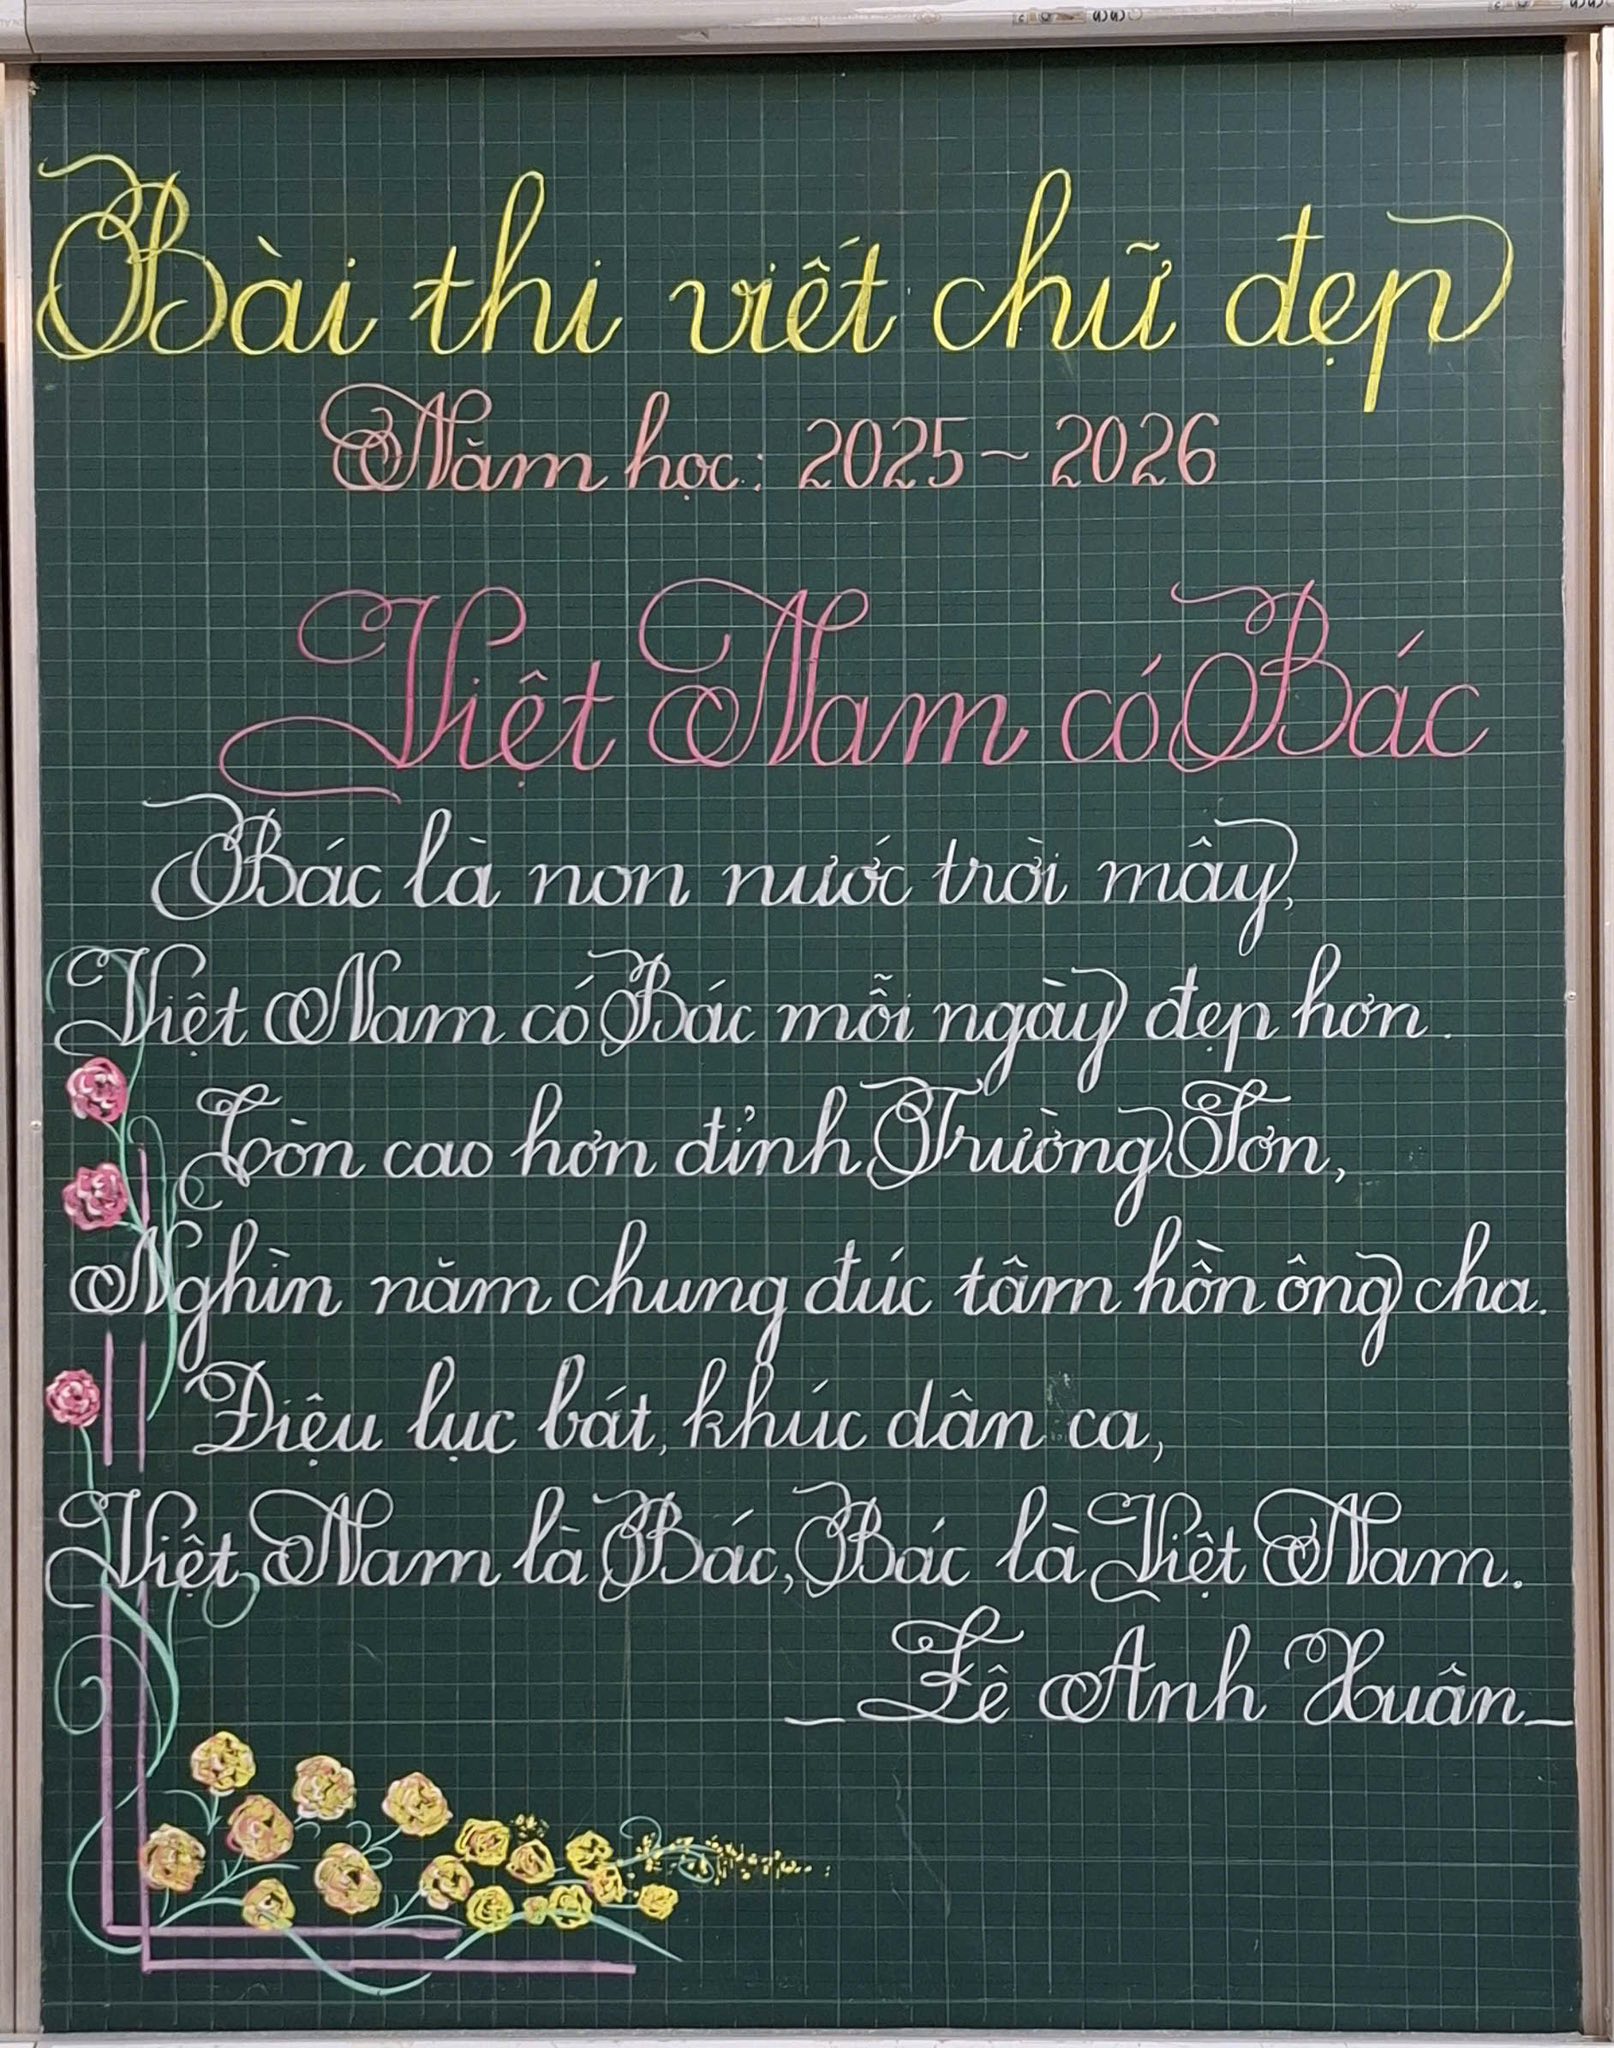 Bài thi viết chữ đẹp
Năm học: 2025 - 2026
Việt Nam có Bác
Bác là non nước trời mây,
Việt Nam có Bác mỗi ngày đẹp hơn.
Còn cao hơn đỉnh Trường Sơn,
Nghìn năm chung đúc tâm hồn ông cha.
Điệu lục bát, khúc dân ca,
Việt Nam là Bác, Bác là Việt Nam.
_ Lê Anh Xuân _